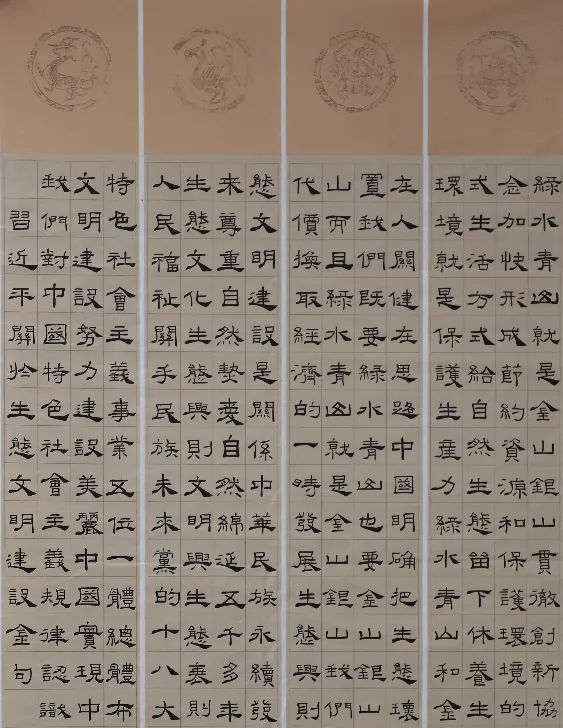 綠水青山就是金山銀山貫徹創新協
念加快形成節約資源和保護環境的
式生活方式給自然生態留下休養生
環境就是保護生產力綠水青山和金
在人關健在思路中國明确把生態環
置我們既要綠水青山也要金山銀山
山而且綠水青山就是金山銀山我們
代價換取經濟的一時發展生態興則
態文明建設是關係中華民族永續發
来尊重自然熱愛自然綿延五千多年
生態文化生態興則文明興生態衰則
人民福祉關乎民族未來黨的十八大
特色社會主義事業五位一體總體布
文明建設努力建設美麗中國實現中
我們對中國特色社會主義規律認識
習近平關於生態文明建設金句